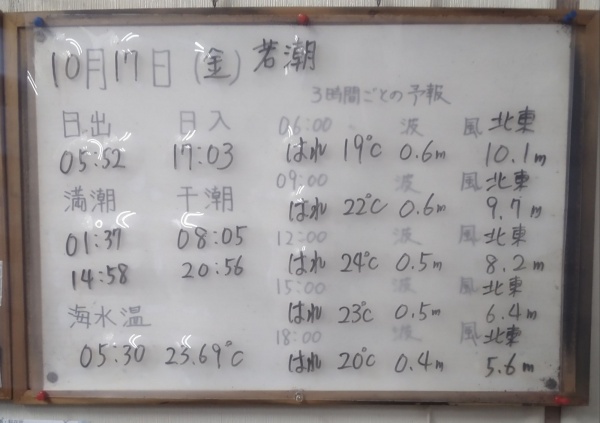 10月17日(金) 若潮
日出 日入
05:52 17:03
満潮 干潮
01:37 08:05
14:58 20:56
海水温
05:30 23.69℃
3時間ごとの予報
06:00 波 風 北東
はれ 19℃ 0.6m 10.1m
09:00 波 風 北東
はれ 22℃ 0.6m 9.7m
12:00 波 風 北東
はれ 24℃ 0.5m 8.2m
15:00 波 風 北東
はれ 23℃ 0.5m 6.4m
18:00 波 風 北東
はれ 20℃ 0.4m 5.6m